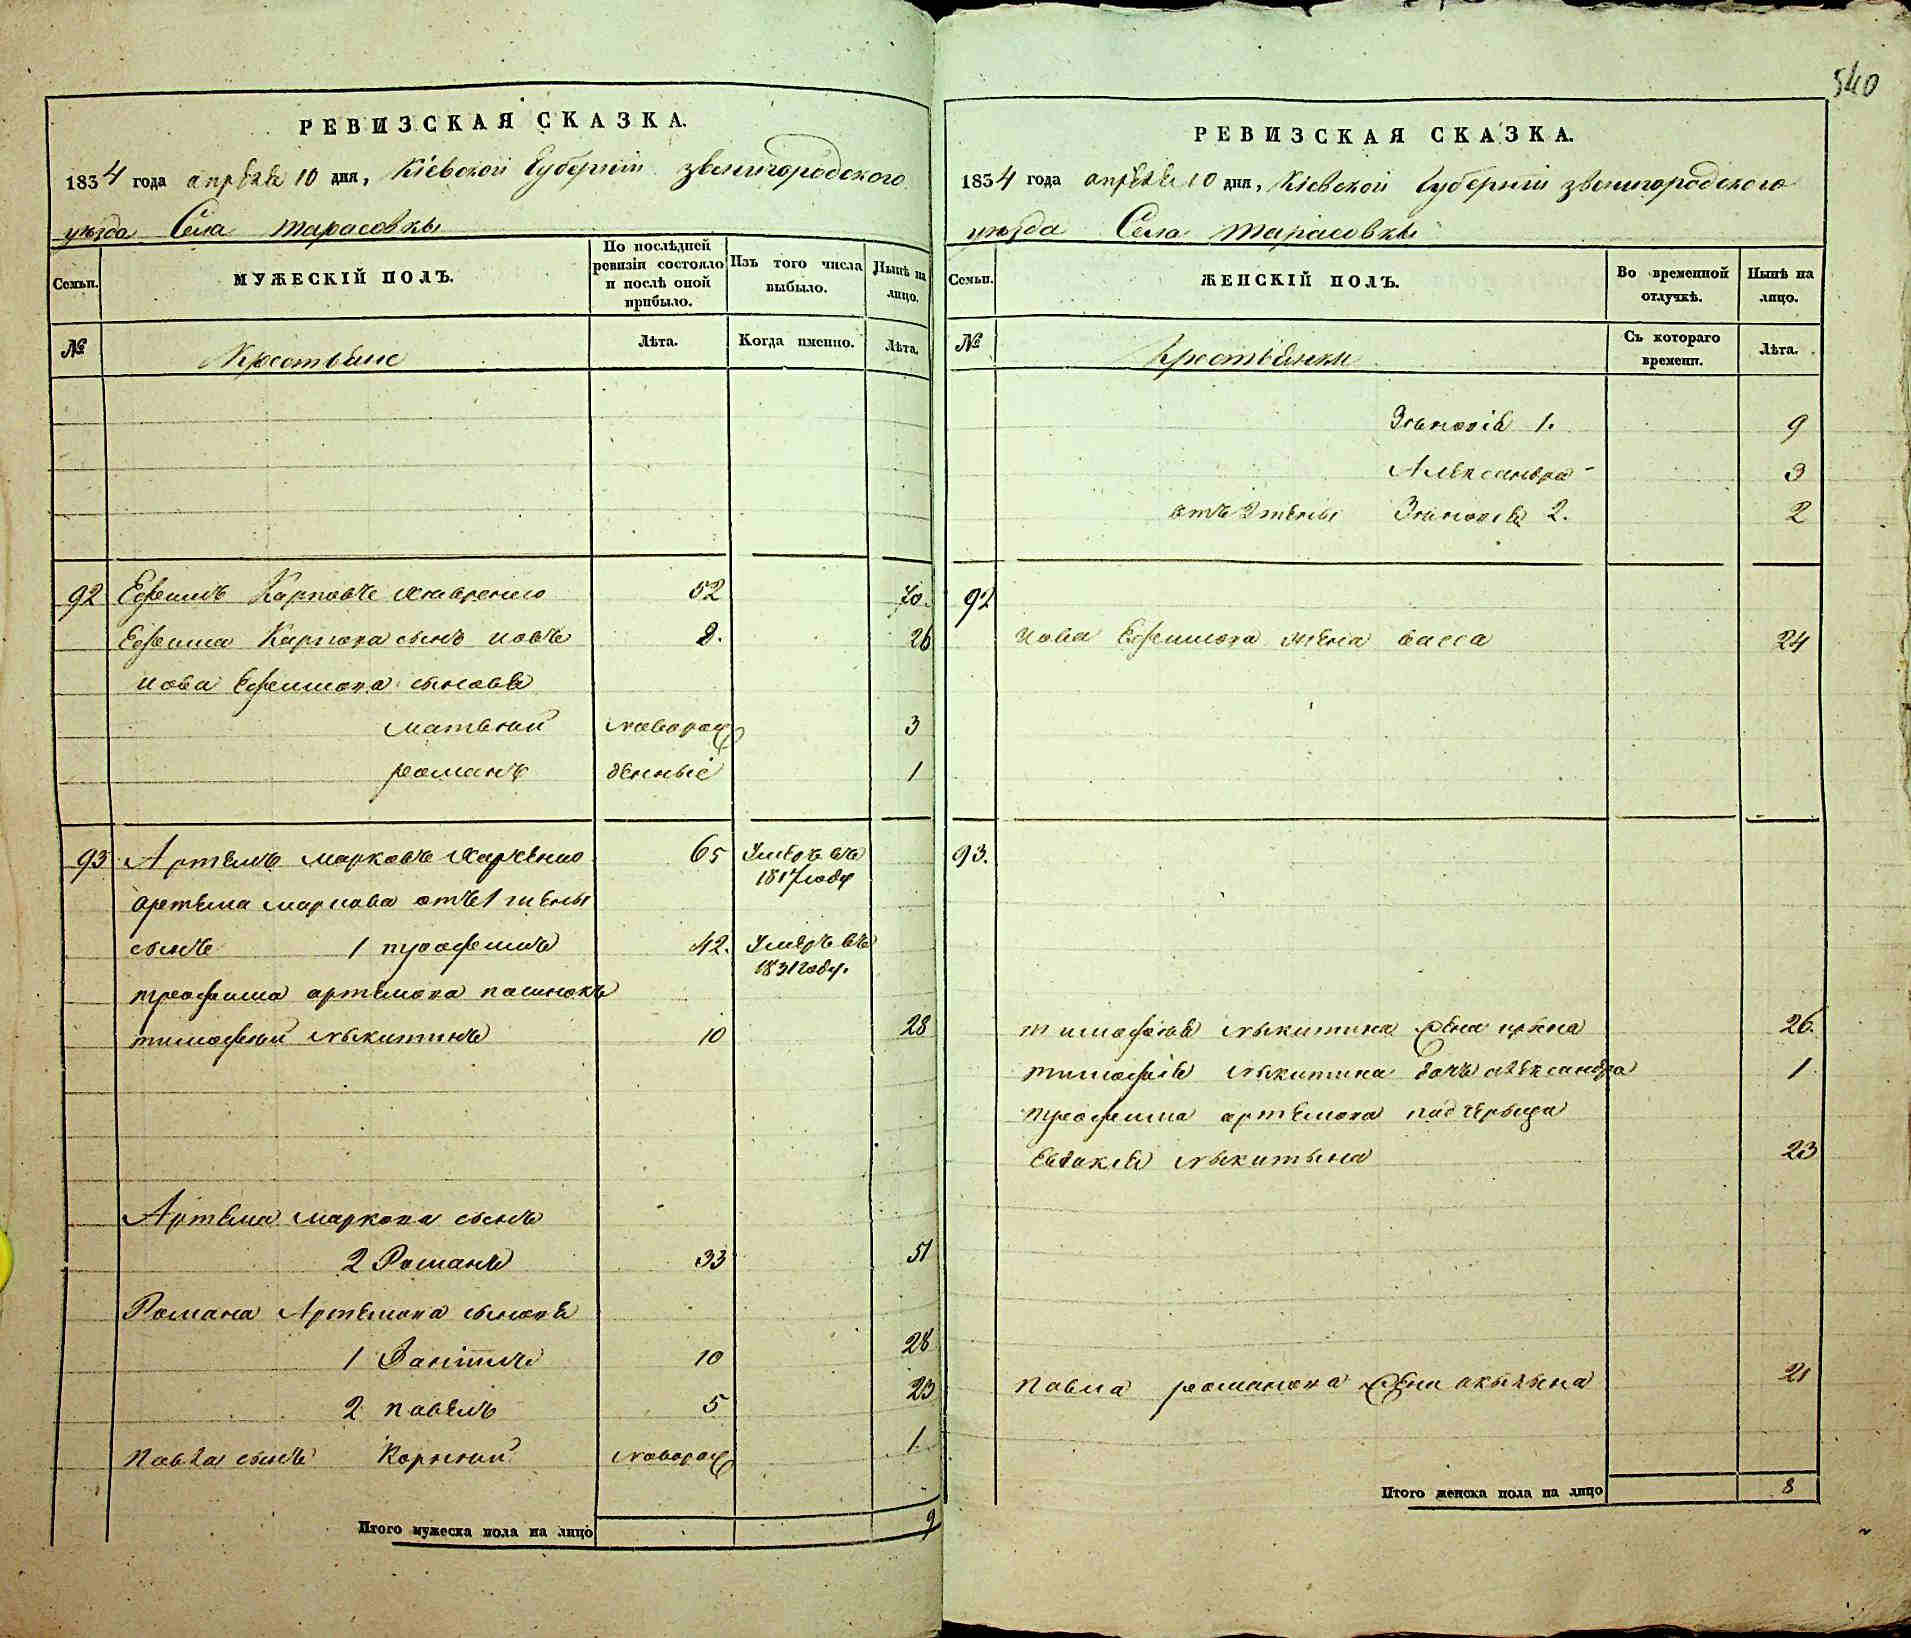 540
РЕВИЗСКАЯ СКАЗКА.
1834 года апреля 10 дня, Кіевской Губерніи звенигородского
уезда Села тарасовки
Семьи.
МУЖЕСКІЙ ПОЛЪ.
По послѣдней ревизіи состояло и послѣ оной прибыло.
Изъ того числа выбыло.
Нынѣ на лицо.
№
Крестьяне
Лѣта.
Когда именно.
Лѣта.
92 Ефимъ Карповъ 52 70.
Ефима Карпова сынъ иовъ 8. 26
иова Ефимова сыновя
матвiй новорож 3
романъ денные 1
93 Артемъ марковъ Харченко 65 Умеръ въ 1817 году
артема маркова отъ 1 жены
сынъ 1 трофимъ 42. Умеръ въ 1831 году.
трофима артемова пасинокъ
тимофiй мыкитинъ 10 28
Артема маркова сынъ
2 Романъ 33 51
Романа Артемова сыновя
1 Данiилъ 10 28
2 павелъ 5 23
павла сынъ Корнiй новорож 1
Итого мужеска пола на лицо 9
РЕВИЗСКАЯ СКАЗКА.
1834 года апреля 10 дня, Кіевской Губерніи звенигородского
уезда Села тарасовки
Семьи.
ЖЕНСКІЙ ПОЛЪ.
Во временной отлучкѣ.
Нынѣ на лицо.
№
Крестьянки
Съ котораго времени.
Лѣта.
Зиновія 1. 9
Александра 3
отъ 2 жены Зиновія 2. 2
92
иова Ефимова жена васса 24
93.
тимофея мыкитина жена ирина 26.
тимофія мыкитина дочь александра 1
трофима артемова падчерыца
Евдокія мыкитына 23
павла романова жена акылына 21
Итого женска пола на лицо 8